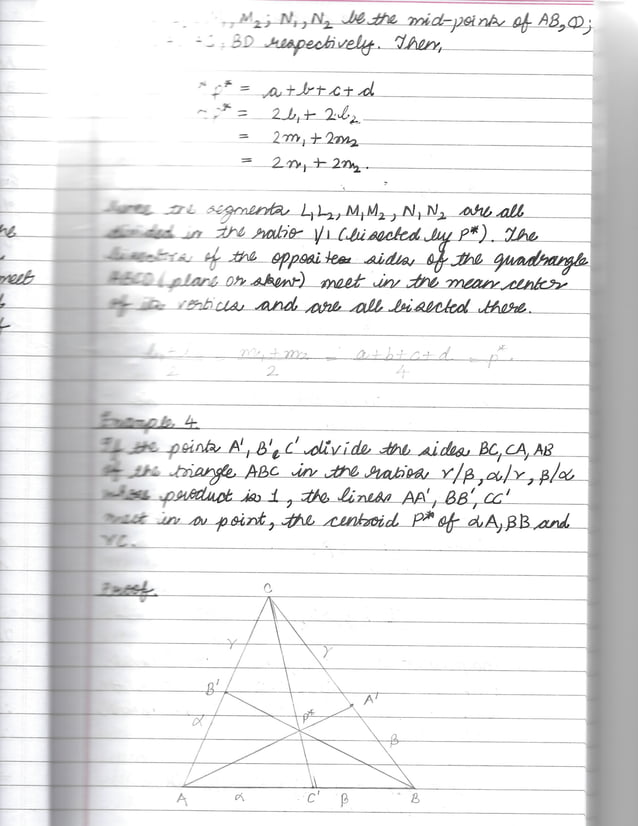 M₂; N₁, N₂ be the mid-points of AB, CD;
BD respectively. Then,
p* = a+b+c+d
= 2l₁ + 2l₂
= 2m₁ + 2m₂
= 2n₁ + 2n₂.
the segments L₁L₂, M₁M₂, N₁N₂ are all
divided in the ratio 1/1 (bisected by P*). The
bisectors of the opposites sides of the quadrangle
ABCD (plane or skew) meet in the mean center
of its vertices and are all bisected there.
m₁+m₂ / 2 = a+b+c+d / 4 = p*.
Example 4
If the points A', B', C' divide the sides BC, CA, AB
of the triangle ABC in the ratios γ/β, α/γ, β/α
whose product is 1, the lines AA', BB', CC'
meet in a point, the centroid P* of αA, βB and
γC.
Proof.
C
γ γ
B' A'
α P* β
A α C' β B
he
meet